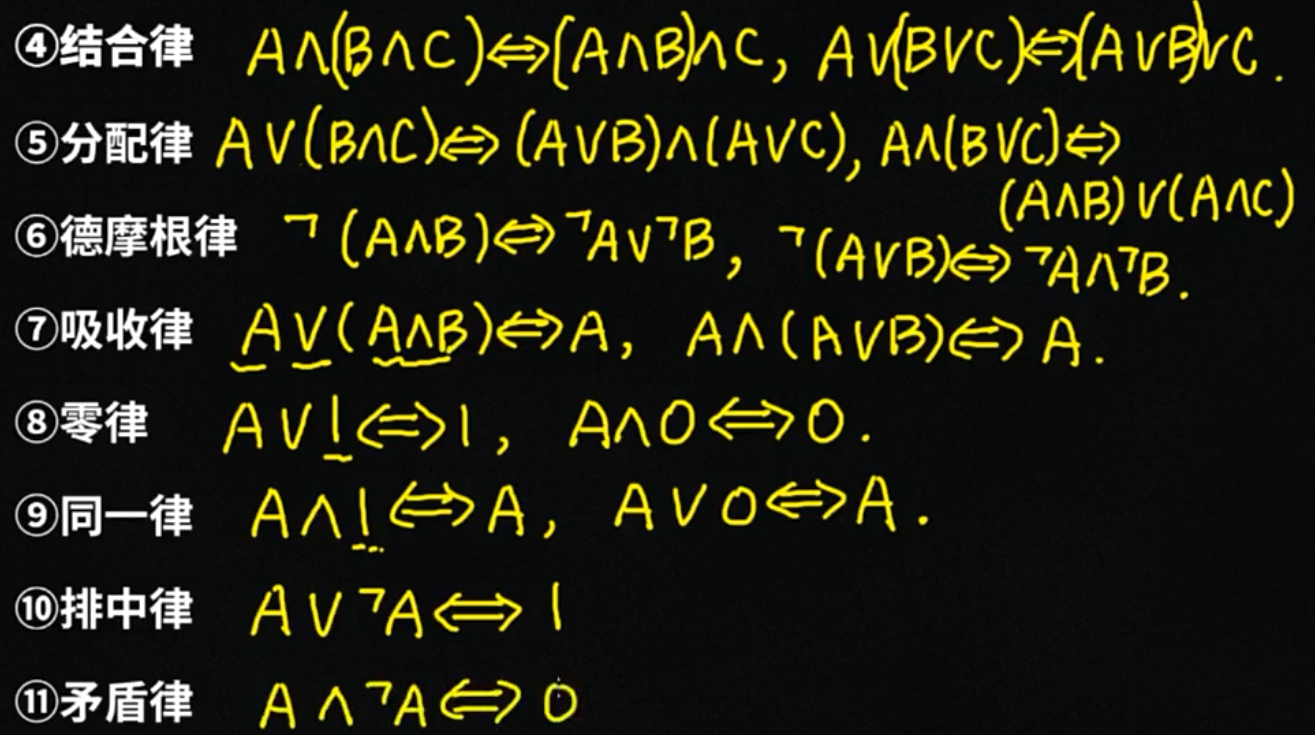 ④结合律 A∧(B∧C)⇔(A∧B)∧C, A∨(B∨C)⇔(A∨B)∨C.
⑤分配律 A∨(B∧C)⇔(A∨B)∧(A∨C), A∧(B∨C)⇔
(A∧B)∨(A∧C)
⑥德摩根律 ¬(A∧B)⇔¬A∨¬B, ¬(A∨B)⇔¬A∧¬B.
⑦吸收律 A∨(A∧B)⇔A, A∧(A∨B)⇔A.
⑧零律 A∨1⇔1, A∧0⇔0.
⑨同一律 A∧1⇔A, A∨0⇔A.
⑩排中律 A∨¬A⇔1
⑪矛盾律 A∧¬A⇔0